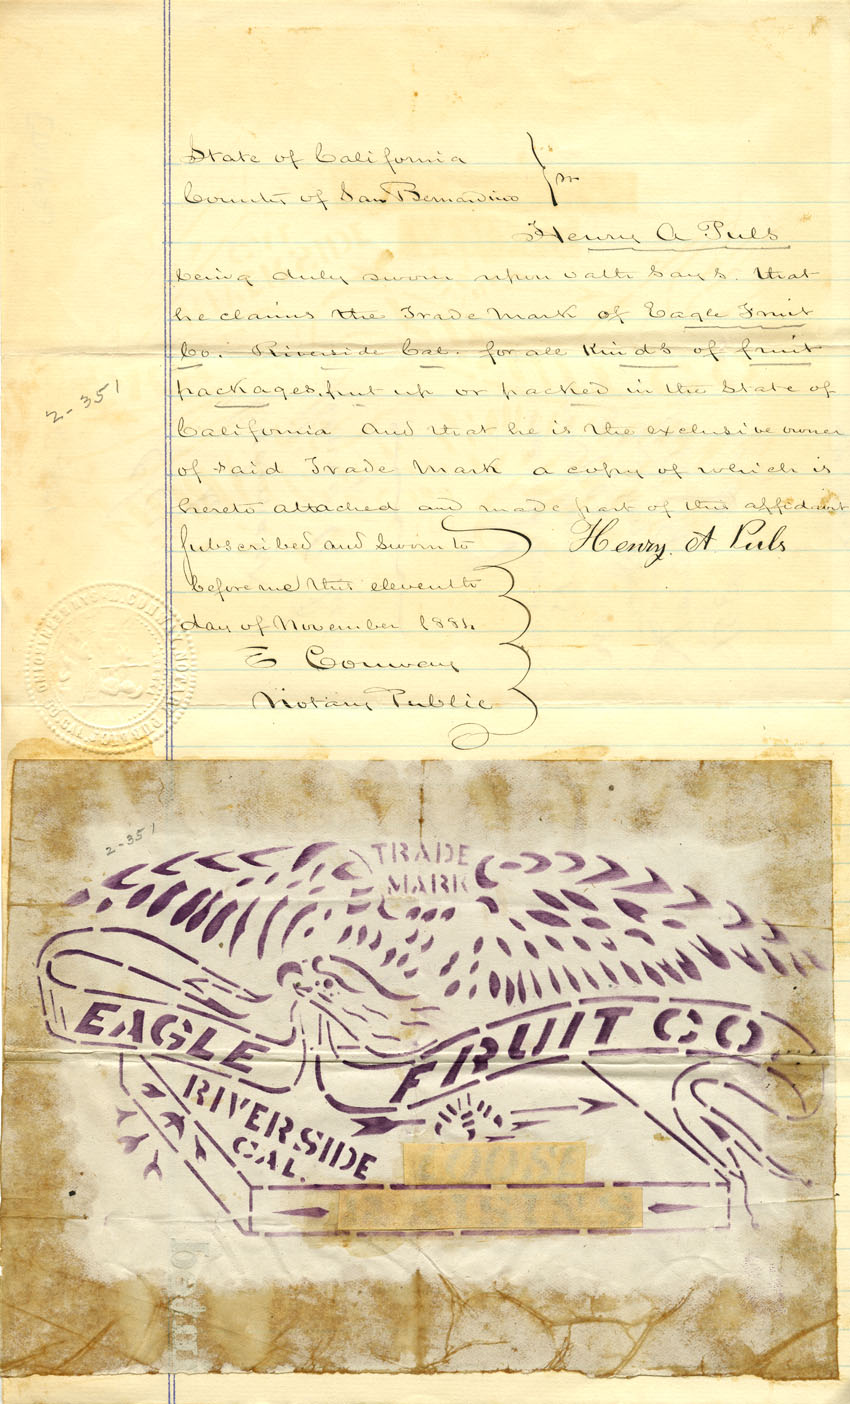 State of California
County of San Bernardino } ss
Henry A Puls
being duly sworn upon oath says. that
he claims the Trade Mark of Eagle Fruit
Co. Riverside Cal. for all kinds of fruit
packages, put up or packed in the State of
California And that he is the exclusive owner
of said Trade Mark a copy of which is
hereto attached and made part of this affidavit
Subscribed and sworn to
before me this eleventh
day of November 1884.
E Conway
Notary Public
Henry. A Puls
2-351
2-351
TRADE
MARK
EAGLE FRUIT CO
RIVERSIDE
CAL.